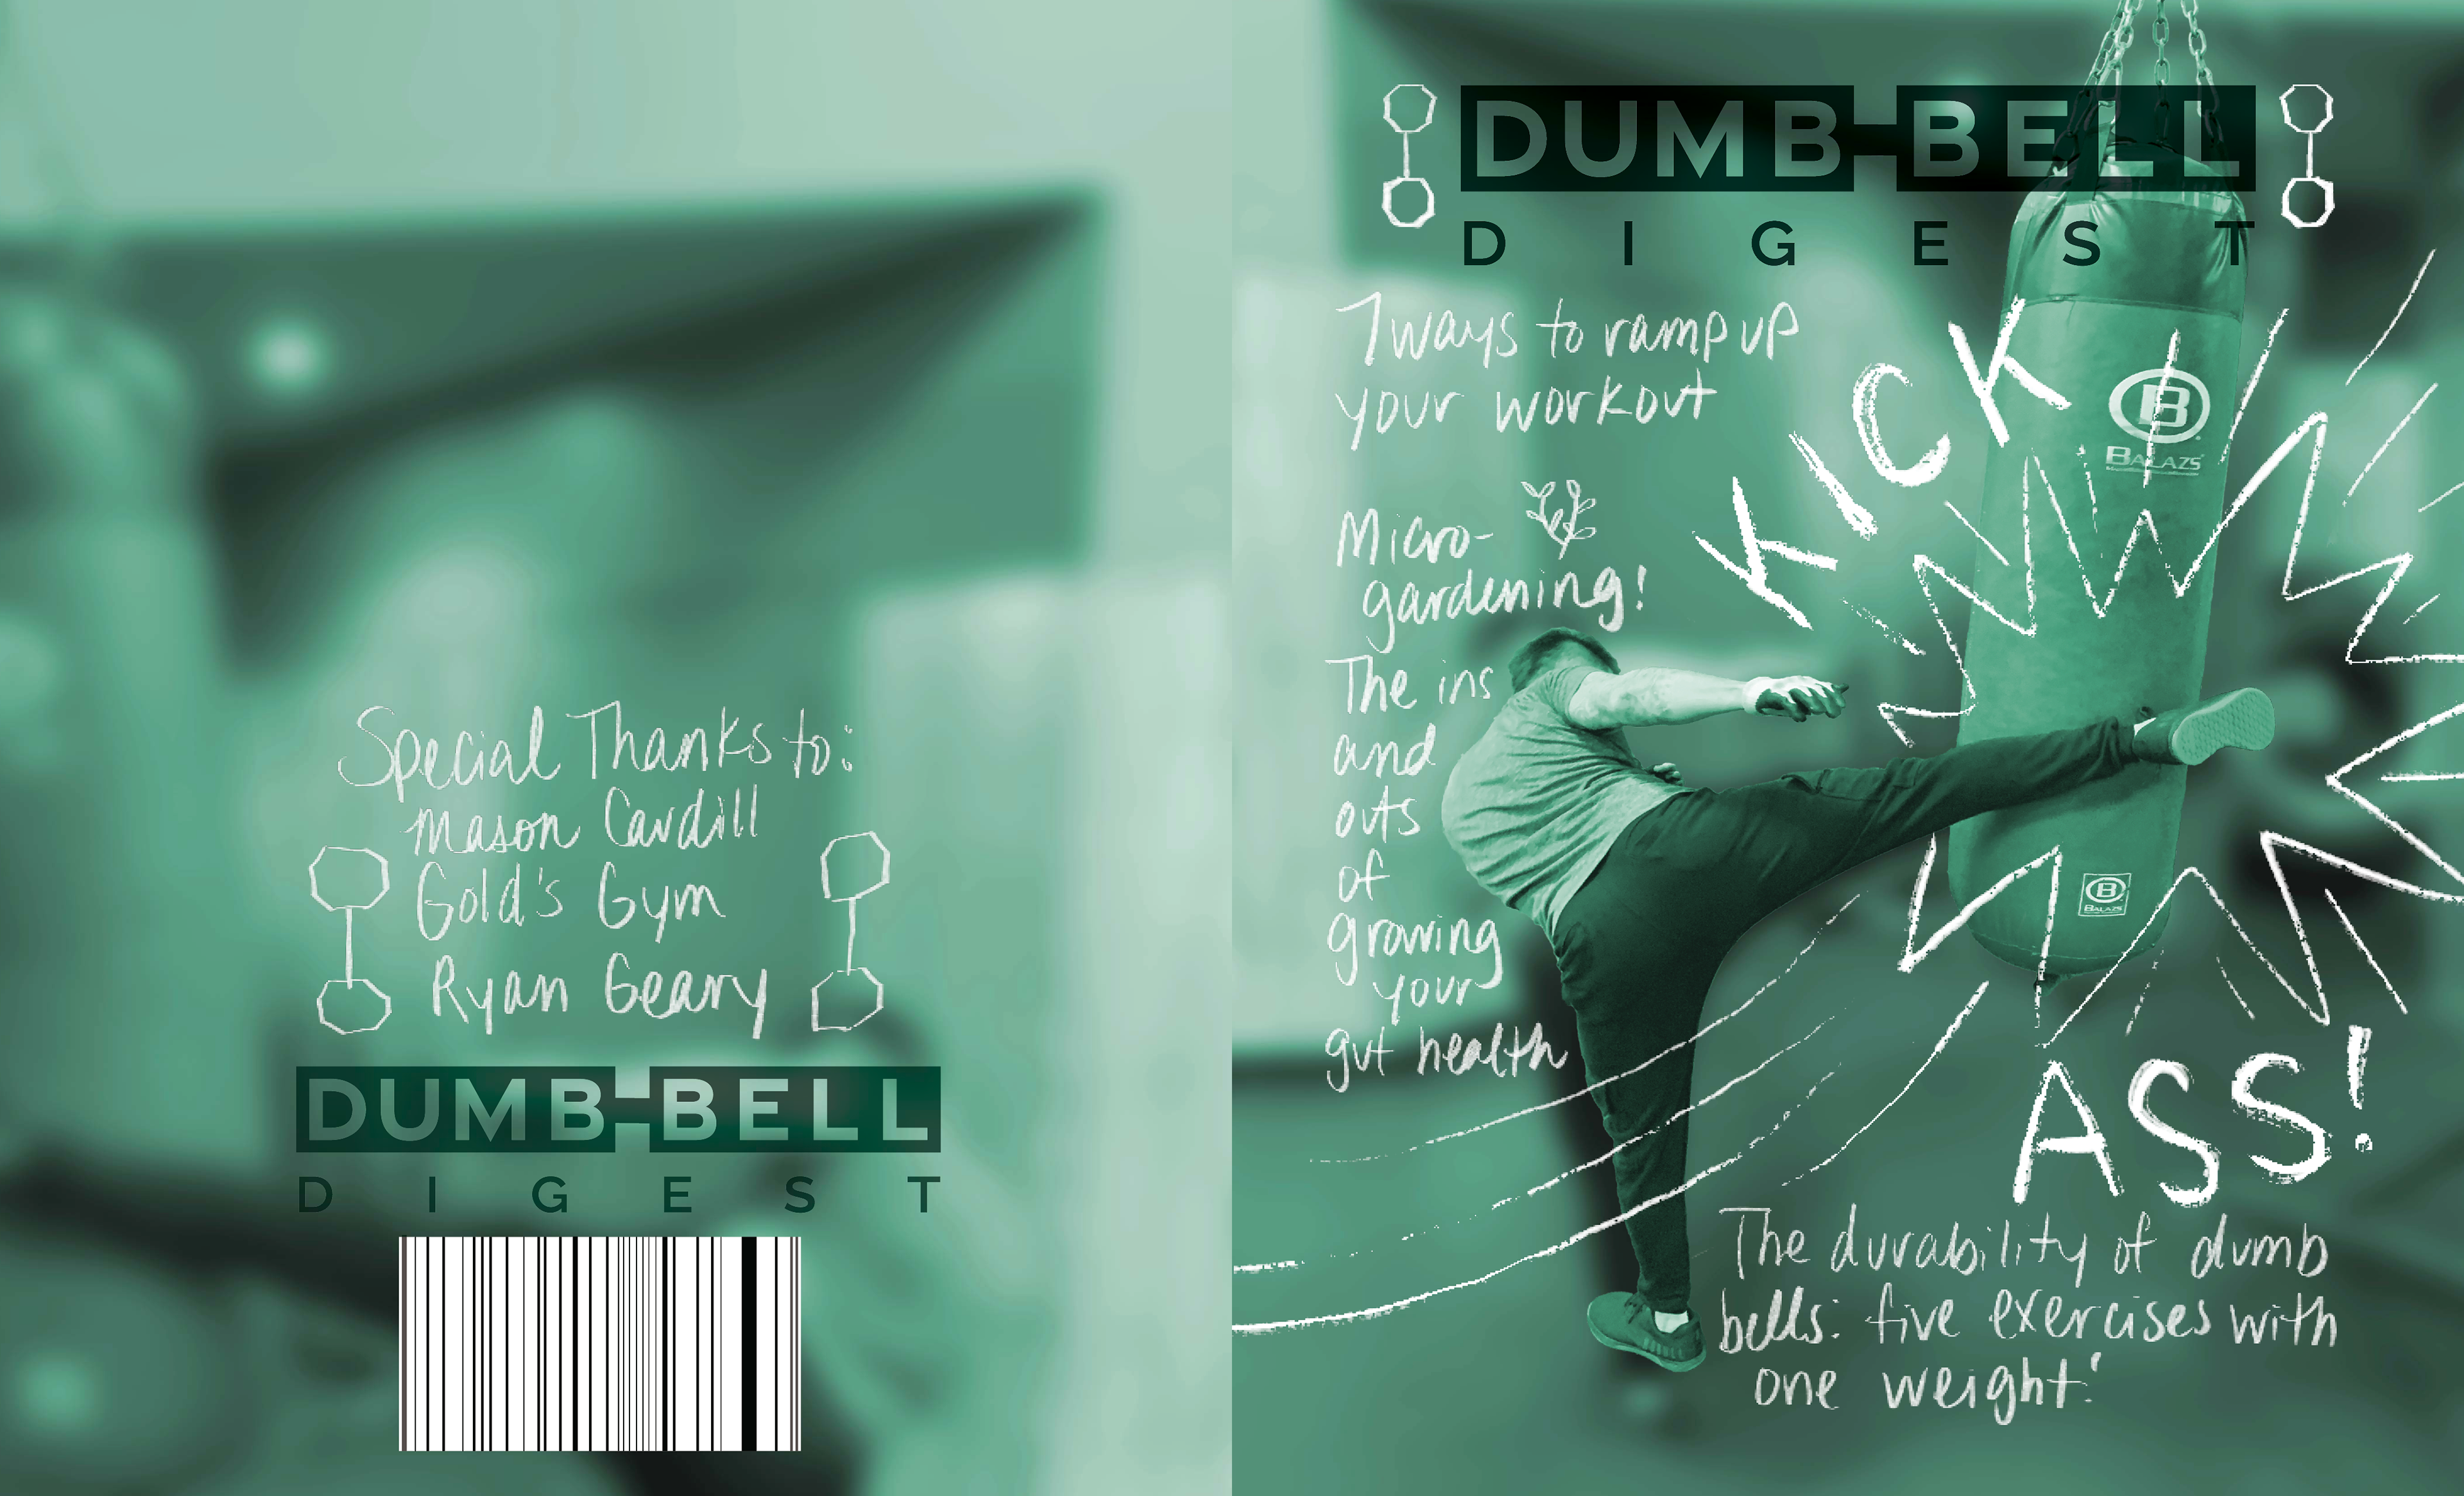 Special Thanks to:
Mason Cardill
Gold's Gym
Ryan Geary
DUMB-BELL
DIGEST
DUMB-BELL
DIGEST
7 ways to ramp up
your workout
KICK
B
BALAZS
Micro-
gardening!
The ins
and
outs
of
growing
your
gut health
B
BALAZS
ASS!
The durability of dumb
bells: five exercises with
one weight!